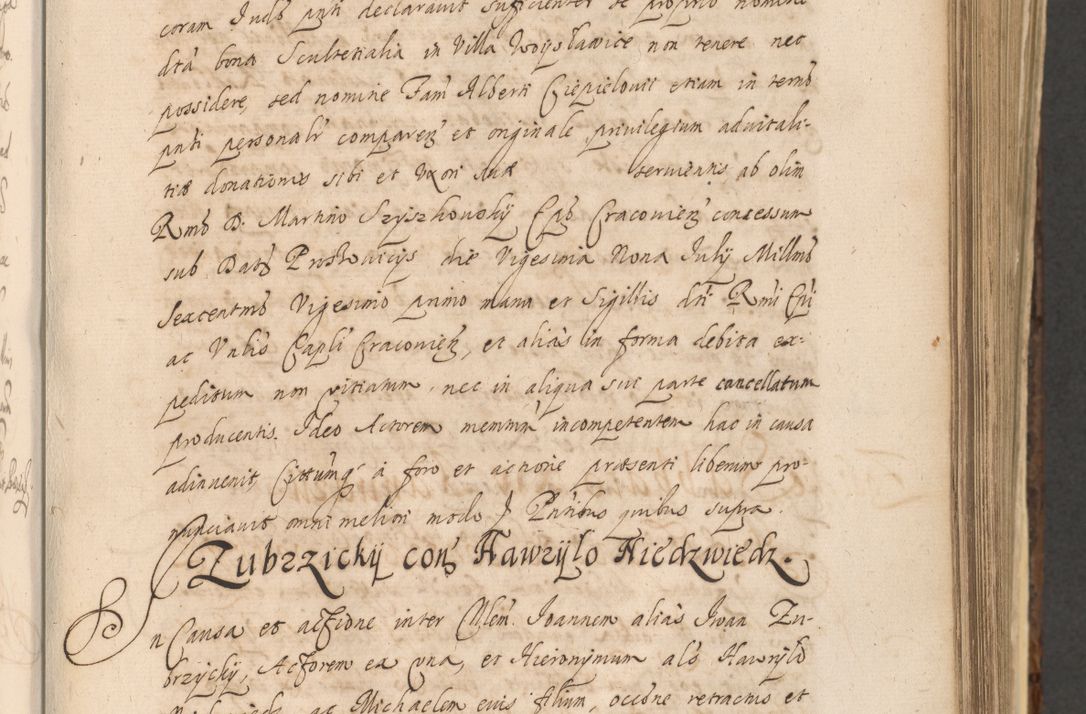 coram Iudo pnti declaravit sufficienter se proprio nomine
dta bona Scultetialia in Villa Woysławice non tenere nec
possidere, sed nomine Fam Alberti Ciepielovii etiam in termo
pnti personalr comparen et originale privilegium advitali-
tiæ donationis sibi et Uxori suæ servientis, ab olim
Rmo D. Martino Szyszkowsky Epo Cracovien concessum
sub Dato Proszovicys die Vigesima Nona July Millmo
Sexcentmo Vigesimo primo manu et Sigillis dti Rmi Epi
ac Vnlis Capli Cracovien, et aliàs in forma debita ex-
peditum non vitiatum, nec in aliqua sui parte cancellatum
producentis. Ideo Actorem memtum incompetentem hac in causa
adinvenit, Cittumq à foro et actione præsenti liberum pro-
nunciavit omni meliori modo. Pntibus quibus supra.
Zubrzicky con Hawryło Niedzwiedz.
In Causa et actione inter Mem. Joannem aliàs Iwan Zu-
brzycky, Actorem ea una, et Hieronymum als Hawryło
ac Michaelem eius filium, occone retractus et